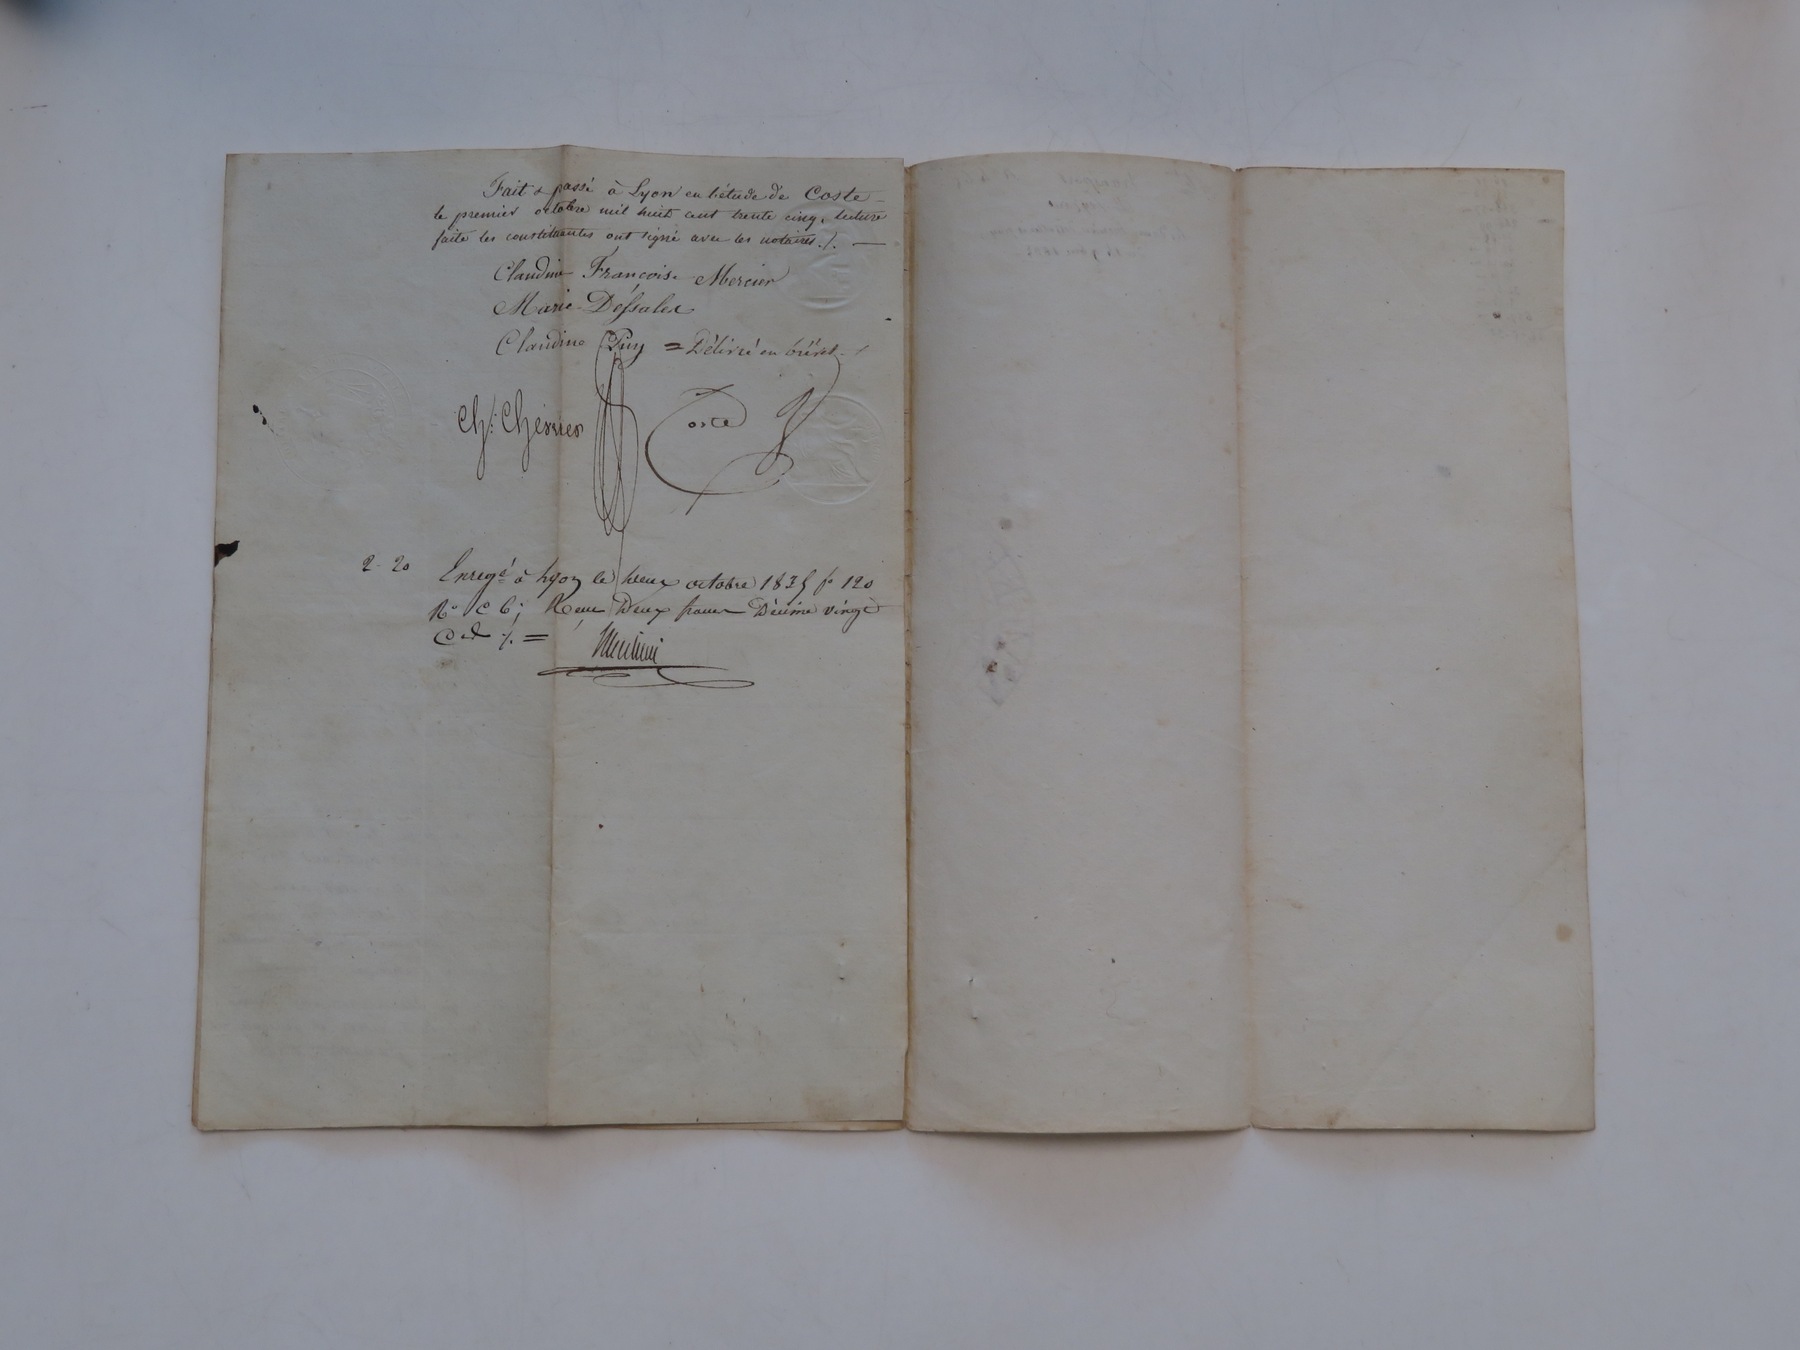 Fait & passé à Lyon en l'étude de Coste
le premier octobre mil huit cent trente cinq, lecture
faite les constituantes ont signé avec les notaires ./. —
Claudine Françoise Mercier
Marie Dessalex
Claudine Puy = Délivré en brévet
Ch. Cherrier
Coste
2 - 20 Enregé à Lyon le deux octobre 1835 fo 120
Ro c 6; Reçu Deux francs Décime vingt
Ces ./. =